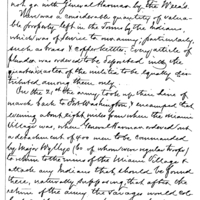 not go with General Harmar by the Weas.
There was a considerable quantity of valua-
ble property left in the town by the Indians
which was of service to our army; particularly
such as brass & copper kettles, every article of
plunder was ordered to be deposited with the
quartermaster of the militia to be equally dis-
tributed among them.
On the 21st the army took up their line of
march back to Fort Washington, & encamped that
evening about eight miles from where the miami
Village was, when General Harmar ordered out
a detachment of 400 men to be commanded
by Major Wyllys (60 of whom were regular troops)
to return to the ruins of the Miami Village &
attack any Indians that should be found
there, naturally supposing that after the
return of the army the savages would col-